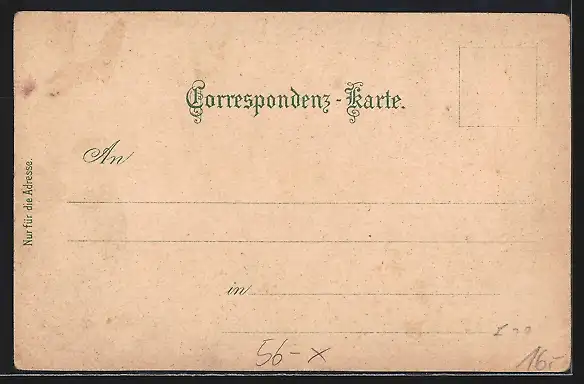 Correspondenz-Karte.
An
Nur für die Adresse.
in
56-x
16.-